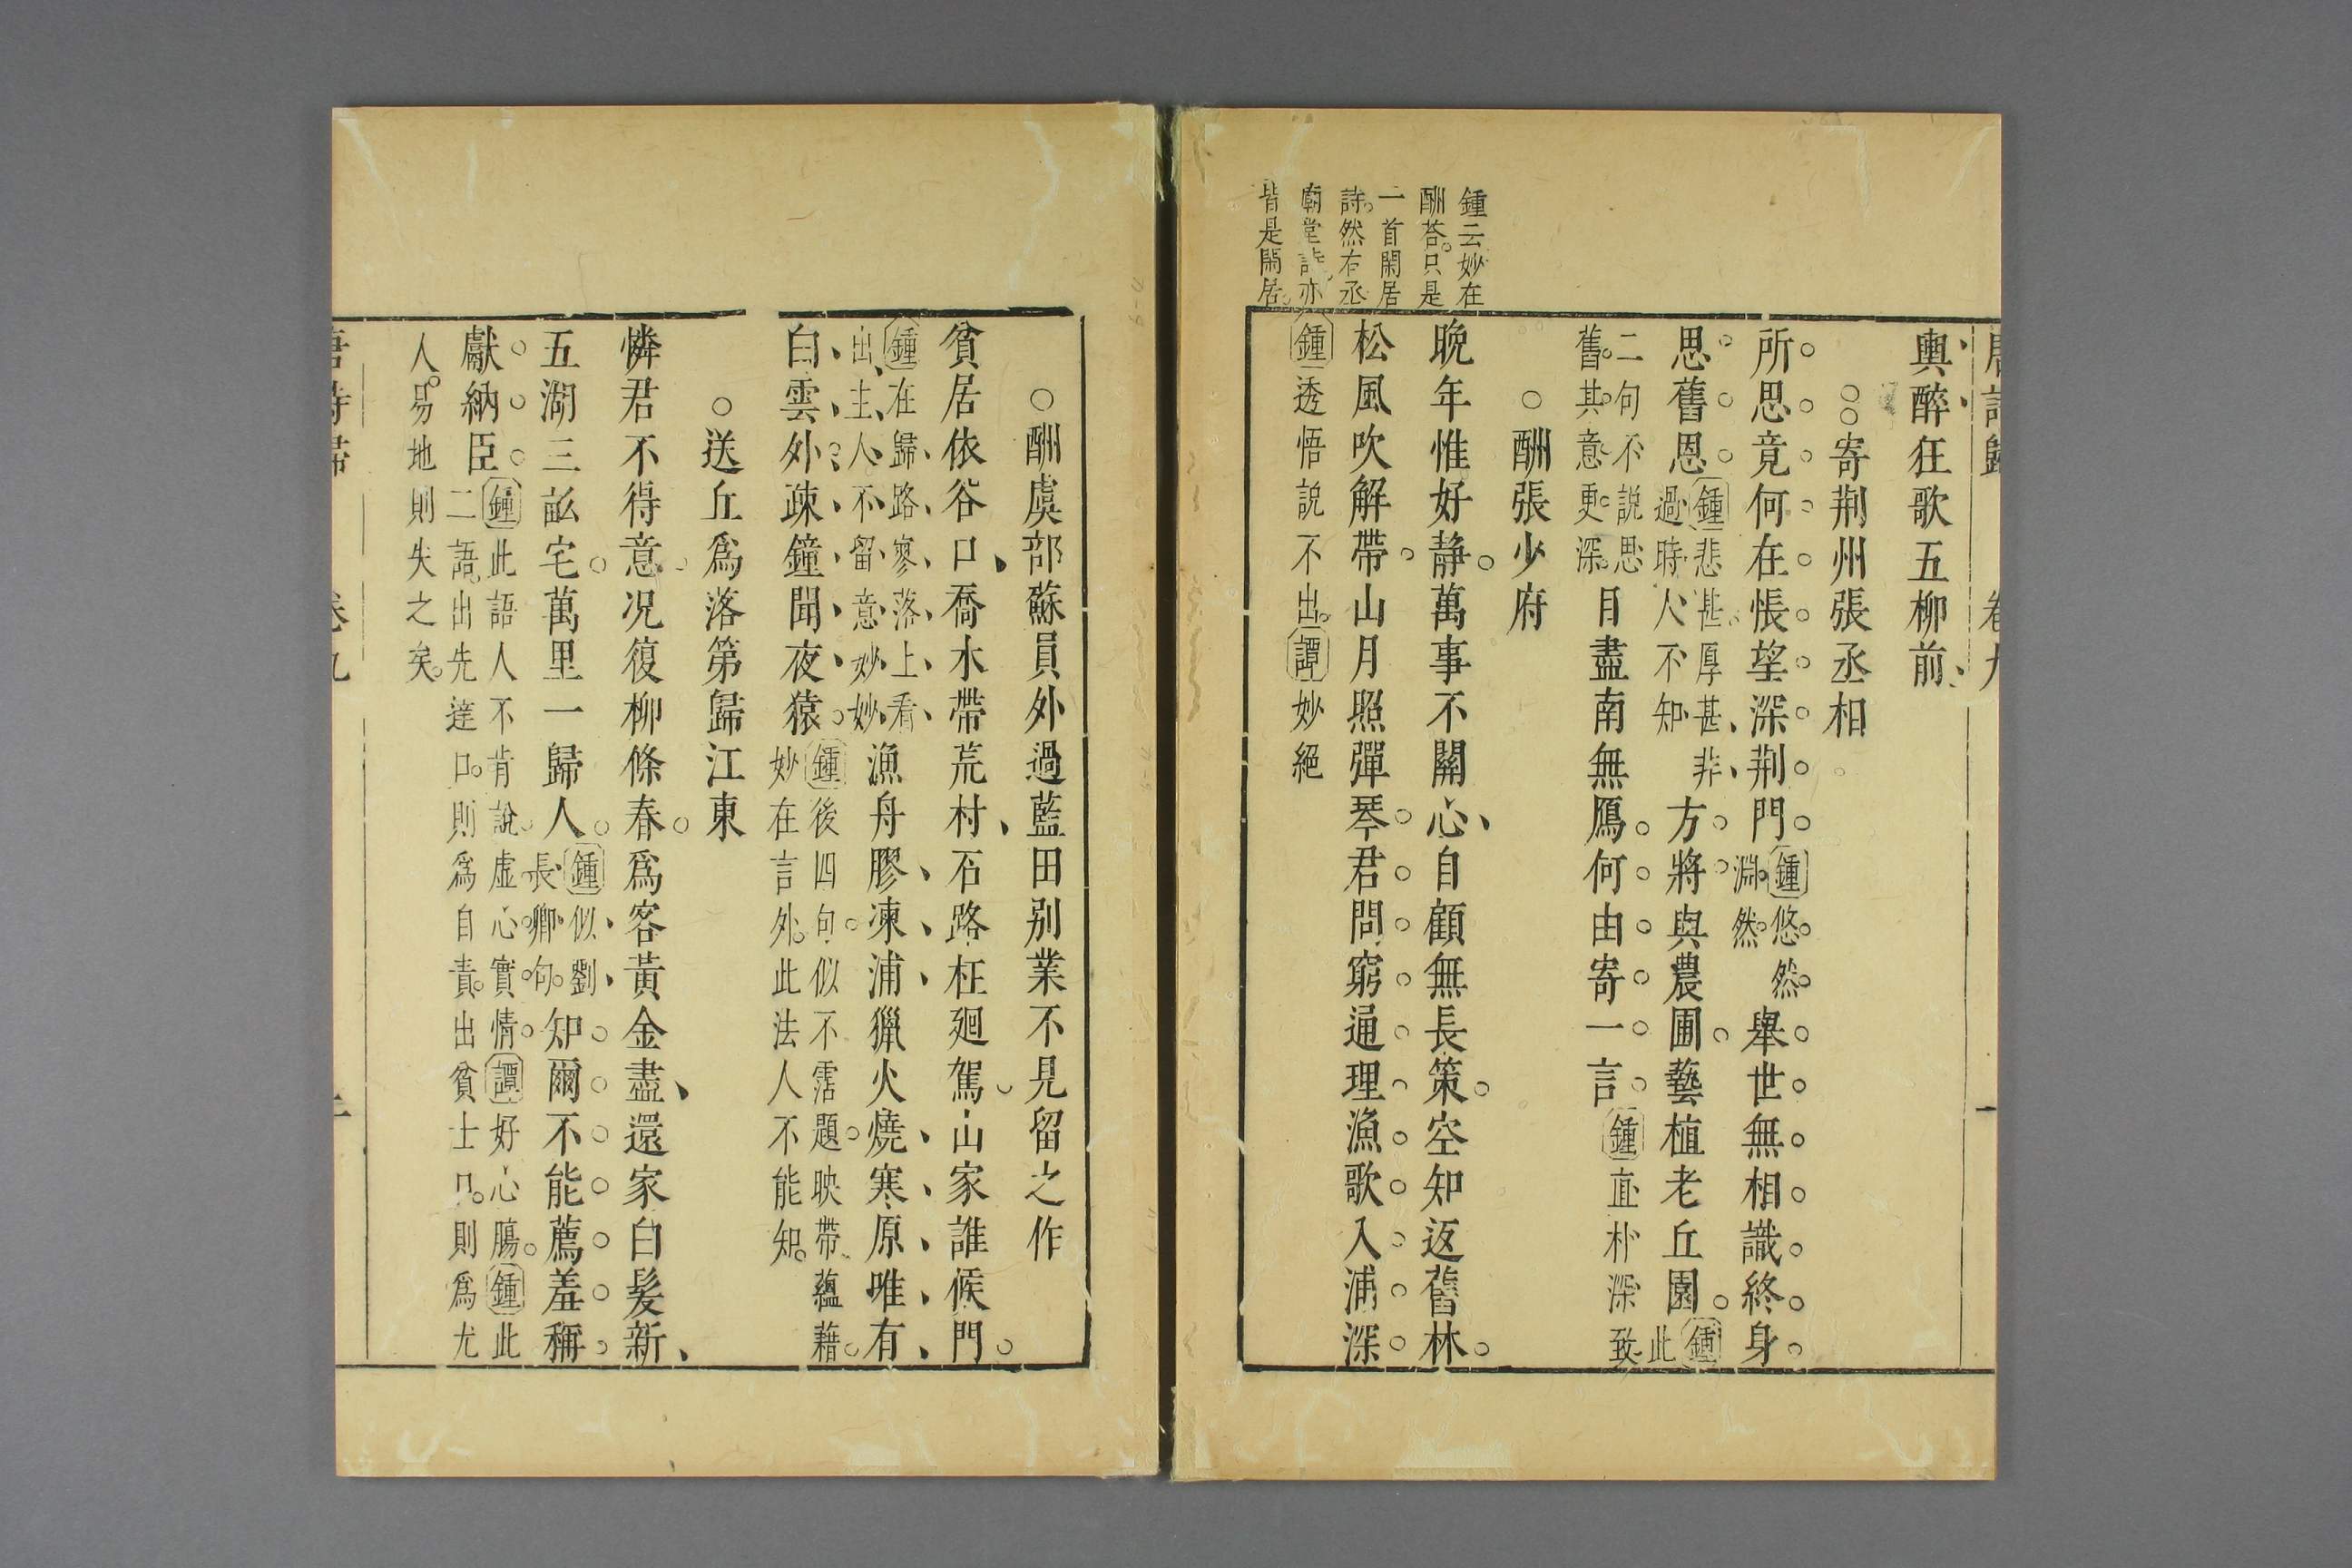 唐詩歸 卷九 一
輿醉狂歌五柳前
○○寄荆州張丞相
所思竟何在悵望深荆門鍾悠然淵然舉世無相識終身
思舊恩鍾悲甚厚甚非過時人不知方將與農圃藝植老丘園鍾此
二句不説思舊其意更深目盡南無鴈何由寄一言鍾直朴深致
○酬張少府
鍾云妙在
酬荅只是
一首閑居
詩然右丞
廟堂詩亦
皆是閑居
晚年惟好静萬事不關心自顧無長策空知返舊林
松風吹解帶山月照彈琴君問窮通理漁歌入浦深
鍾透悟説不出譚妙絕
○酬虞部蘇員外過藍田别業不見留之作
貧居依谷口喬木帶荒村石路枉廻駕山家誰候門
鍾在歸路寥落上看出主人不留意妙妙漁舟膠凍浦獵火燒寒原唯有
白雲外疎鐘聞夜猿鍾後四句似不霑題映帶蘊藉妙在言外此法人不能知
○送丘爲落第歸江東
憐君不得意况復柳條春爲客黃金盡還家白髮新
五湖三畝宅萬里一歸人鍾似劉長卿句知爾不能薦羞稱
獻納臣鍾此語人不肯說虛心實情譚好心腸鍾此二語出先達口則爲自責出貧士口則爲尤
人易地則失之矣
唐詩歸 卷九